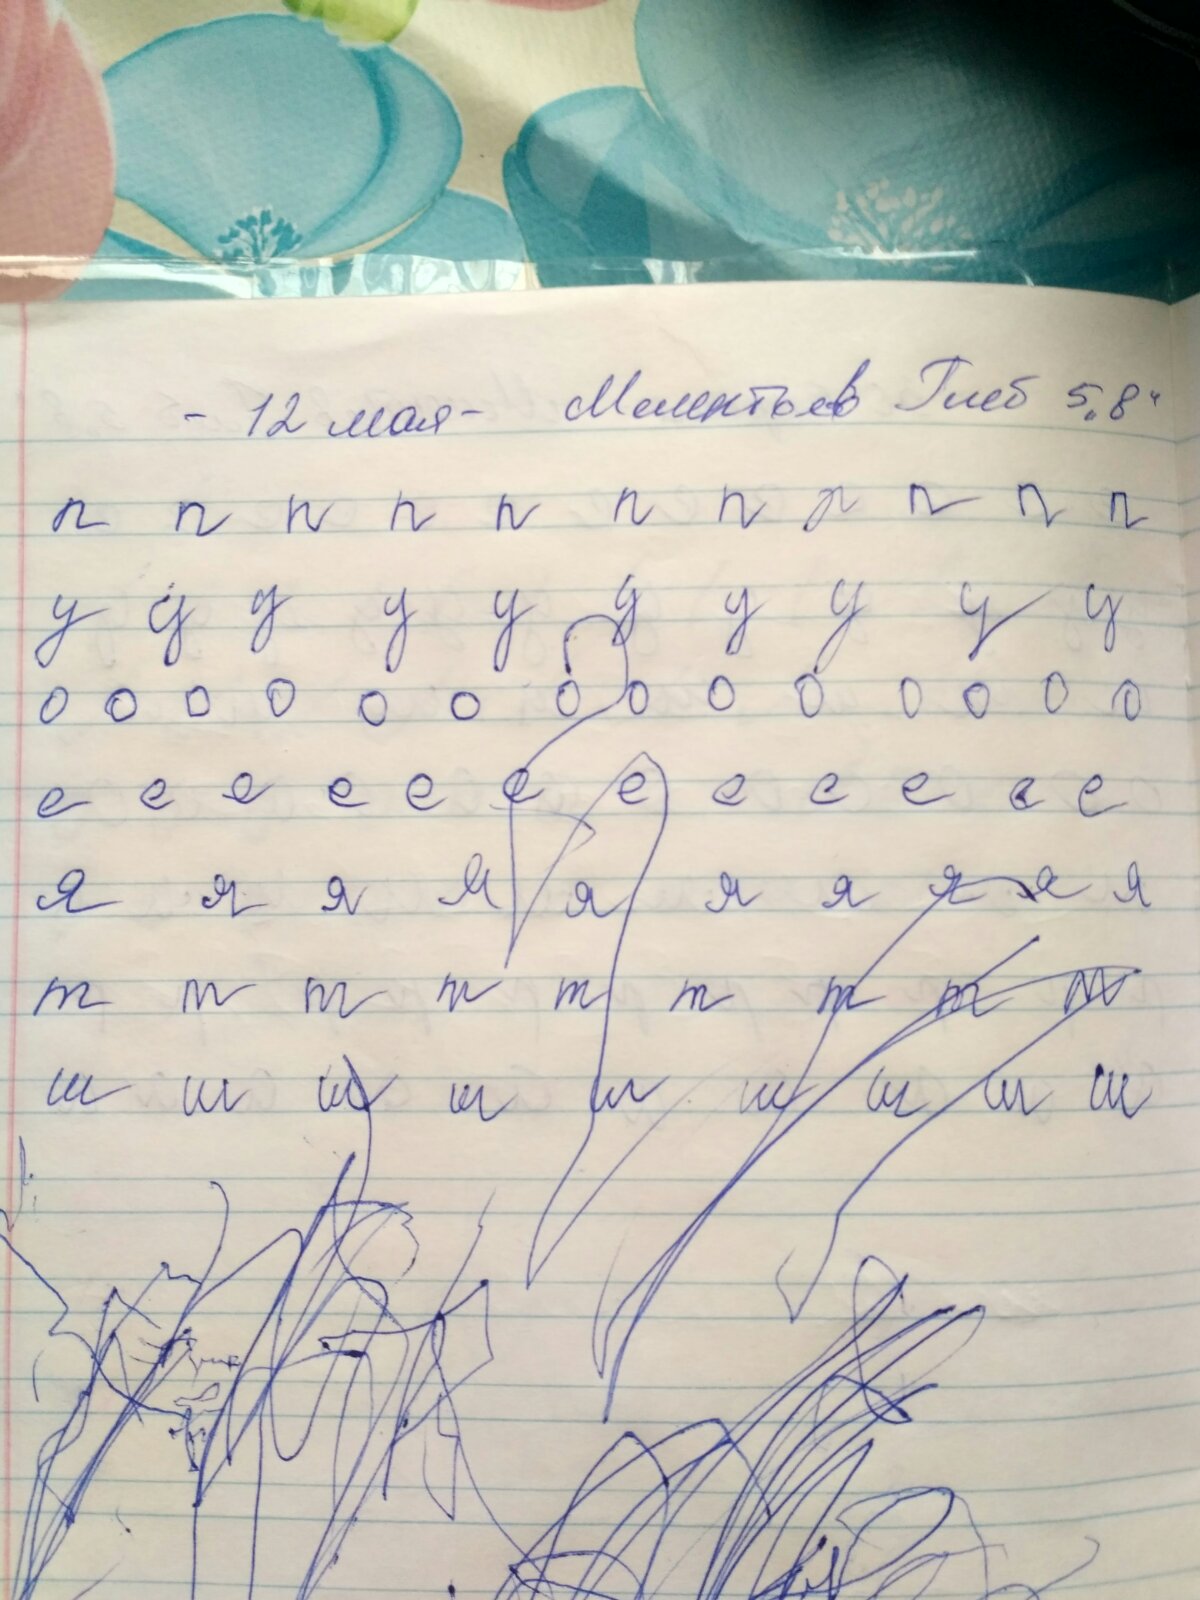 - 12 мая - Мелентьев Глеб 5 „8"
п п п п п п п п п п п
у у у у у у у у у у
о о о о о о о о о о о о о о
е е е е е е е е е е е е
я я я я я я я я я я
т т т т т т т т т
ш ш ш ш ш ш ш ш ш